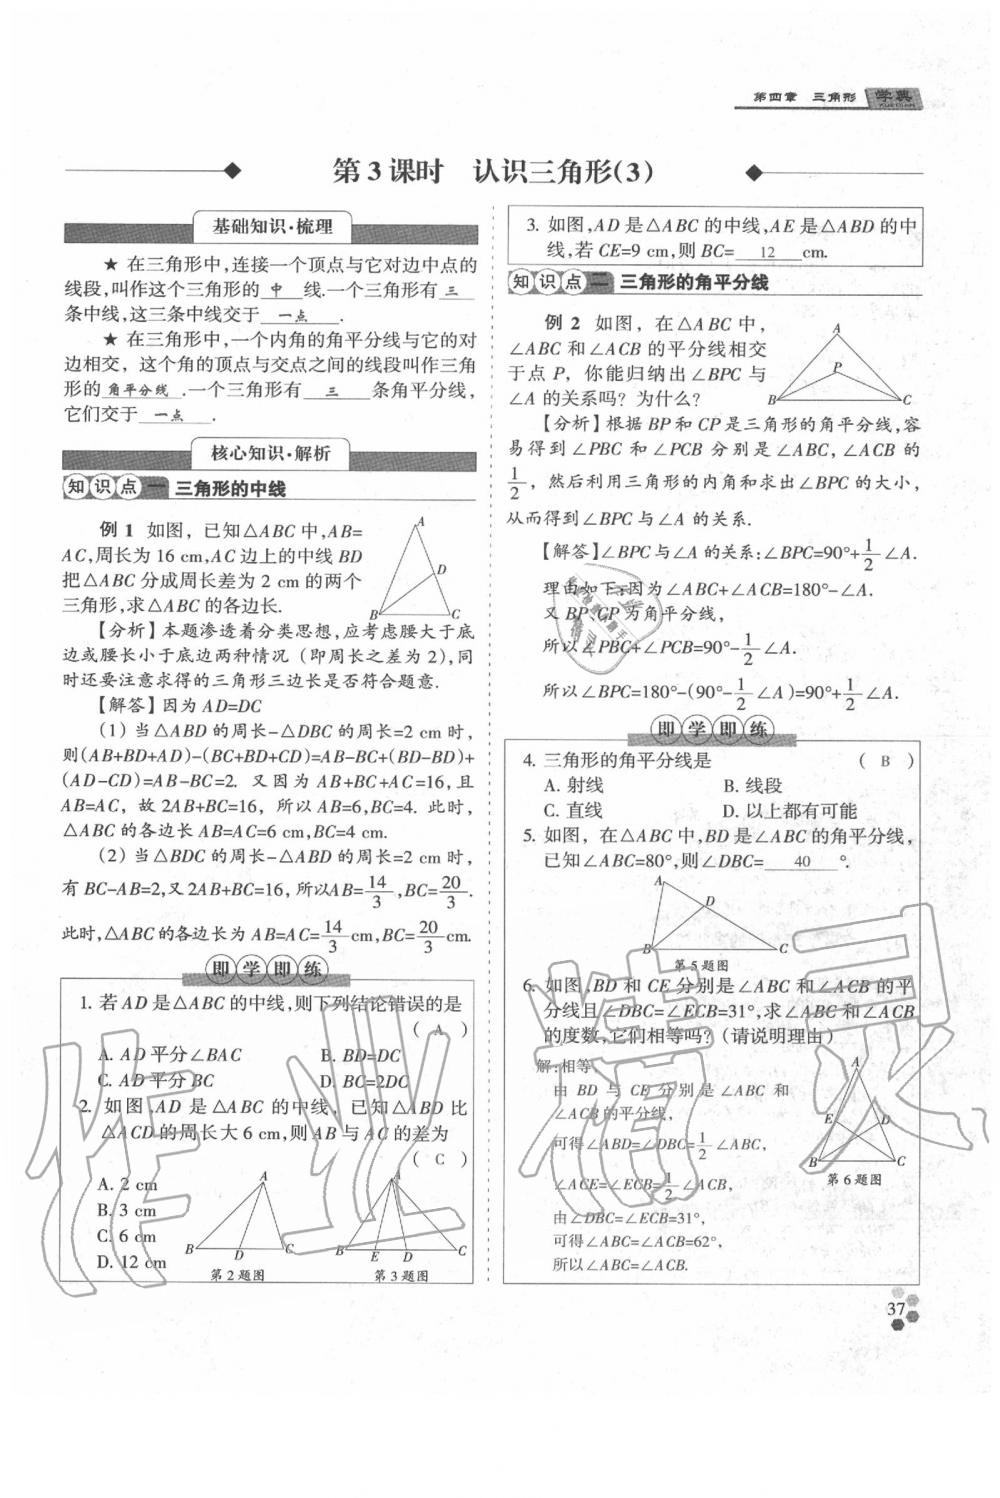 第四章 三角形 学典
XUEDIAN
第3课时 认识三角形(3)
基础知识·梳理
★ 在三角形中,连接一个顶点与它对边中点的
线段,叫作这个三角形的 中 线.一个三角形有 三
条中线,这三条中线交于 一点 .
★ 在三角形中,一个内角的角平分线与它的对
边相交，这个角的顶点与交点之间的线段叫作三角
形的 角平分线 .一个三角形有 三 条角平分线,
它们交于 一点 .
核心知识·解析
知识点一 三角形的中线
例1 如图，已知△ABC中,AB=
AC,周长为16 cm,AC边上的中线BD
把△ABC分成周长差为2 cm的两个
三角形,求△ABC的各边长.
A
D
B C
【分析】本题渗透着分类思想,应考虑腰大于底
边或腰长小于底边两种情况（即周长之差为2）,同
时还要注意求得的三角形三边长是否符合题意.
【解答】因为AD=DC
(1) 当△ABD的周长-△DBC的周长=2 cm时,
则(AB+BD+AD)-(BC+BD+CD)=AB-BC+(BD-BD)+
(AD-CD)=AB-BC=2. 又因为AB+BC+AC=16,且
AB=AC，故2AB+BC=16，所以AB=6,BC=4. 此时,
△ABC的各边长AB=AC=6 cm,BC=4 cm.
(2) 当△BDC的周长-△ABD的周长=2 cm时,
有BC-AB=2,又2AB+BC=16，所以AB=14/3,BC=20/3.
此时,△ABC的各边长为AB=AC=14/3 cm,BC=20/3 cm.
即学即练
1. 若AD是△ABC的中线,则下列结论错误的是
( A )
A. AD平分∠BAC B. BD=DC
C. AD平分BC D. BC=2DC
2. 如图,AD是△ABC的中线，已知△ABD比
△ACD的周长大6 cm,则AB与AC的差为
( C )
A. 2 cm
B. 3 cm
C. 6 cm
D. 12 cm
A
B D C
第2题图
A
B E D C
第3题图
3. 如图,AD是△ABC的中线,AE是△ABD的中
线,若CE=9 cm,则BC= 12 cm.
知识点二 三角形的角平分线
例2 如图，在△ABC中，
∠ABC和∠ACB的平分线相交
于点P，你能归纳出∠BPC与
∠A的关系吗？为什么？
A
P
B C
【分析】根据BP和CP是三角形的角平分线,容
易得到∠PBC和∠PCB分别是∠ABC、∠ACB的
1/2，然后利用三角形的内角和求出∠BPC的大小,
从而得到∠BPC与∠A的关系.
【解答】∠BPC与∠A的关系:∠BPC=90°+1/2∠A.
理由如下:因为∠ABC+∠ACB=180°-∠A.
又BP、CP为角平分线,
所以∠PBC+∠PCB=90°-1/2∠A.
所以∠BPC=180°-(90°-1/2∠A)=90°+1/2∠A.
即学即练
4. 三角形的角平分线是 ( B )
A. 射线 B. 线段
C. 直线 D. 以上都有可能
5. 如图，在△ABC中,BD是∠ABC的角平分线,
已知∠ABC=80°,则∠DBC= 40 °.
A
D
B C
第5题图
6. 如图,BD和CE分别是∠ABC和∠ACB的平
分线且∠DBC=∠ECB=31°,求∠ABC和∠ACB
的度数,它们相等吗？(请说明理由)
解:相等,
由BD与CE分别是∠ABC和
∠ACB的平分线，
可得∠ABD=∠DBC=1/2∠ABC,
∠ACE=∠ECB=1/2∠ACB,
由∠DBC=∠ECB=31°,
可得∠ABC=∠ACB=62°,
所以∠ABC=∠ACB.
A
E D
B C
第6题图
作业精灵
37